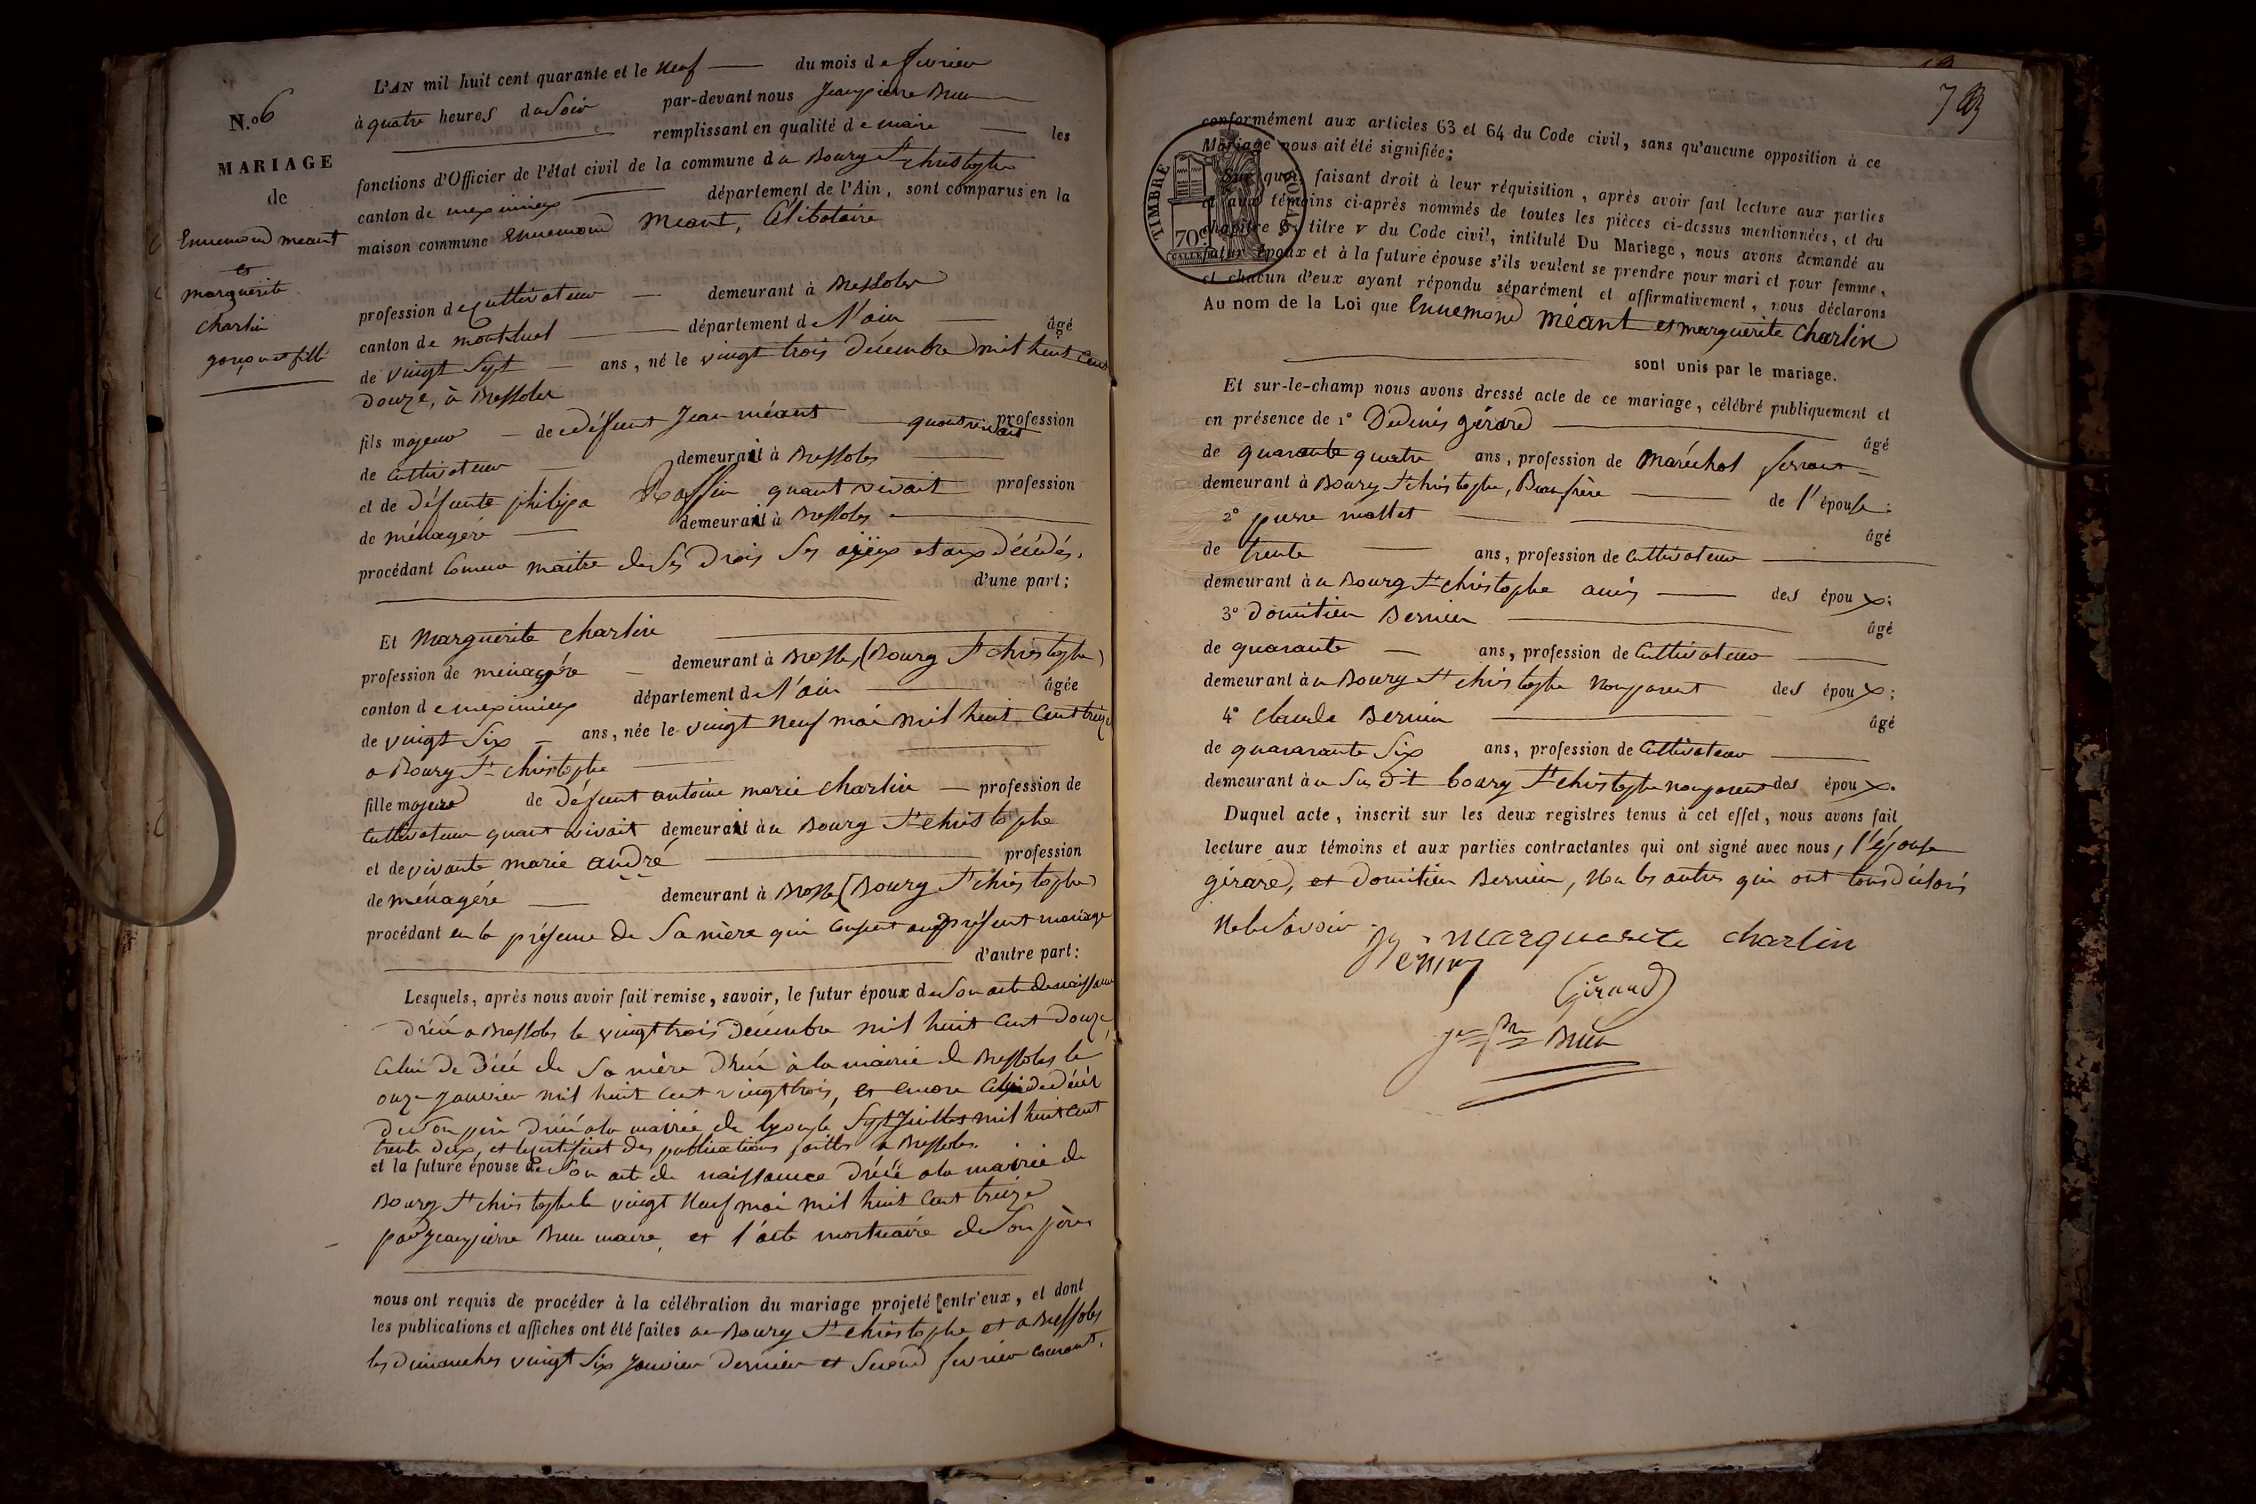 N.o 6
MARIAGE
de
Ennemond méant
et
marguerite
charlin
garçon et fille
L'AN mil huit cent quarante et le neuf du mois de fevrier
à quatre heures du Soir par-devant nous Jeanpierre Brun
remplissant en qualité de maire les
fonctions d'Officier de l'état civil de la commune de Bourg St christophe
canton de meximieux département de l'Ain, sont comparus en la
maison commune Ennemond Méant, Célibataire
profession de Cultivateur demeurant à Bressoles
canton de montluel département de l'ain âgé
de vingt Sept ans, né le vingt trois décembre mil huit cent
douze, à Bressoles
fils majeur de défunt Jean méant quand vivait profession
de Cultivateur demeurait à Bressoles
et de défunte philipa quant vivait profession
de ménagére demeurait à Bressoles
procédant Comme maitre de Ses Drois Ses ayeux étaux décédés.
d'une part;
Et Marguerite charlin
profession de ménagére demeurant à Brosses (Bourg St christophe)
canton de meximieux département de l'ain âgée
de vingt Six ans, née le vingt neuf mai mil huit Cent treize
a Bourg St christophe
fille majeure de défunt antoine marie charlin profession de
Cultivateur quant vivait demeurait à a Bourg St christophe
et de vivante marie andré profession
de ménagére demeurant à Brosses (Bourg St christophe)
procédant en la présence de Sa mère qui Consent au présent mariage
d'autre part:
Lesquels, après nous avoir fait remise, savoir, le futur époux de Son acte de naissance
dréé a Bressoles le vingt trois Décembre mil huit Cent Douze,
Celui de Décé de Sa mère Dréé à la mairie de Bressoles le
onze janvier mil huit Cent vingt trois, et encore Celui de décés
de Son père Dréé a la mairie de lyon le Sept juillet mil huit cent
trente deux, et le certificat des publications faittes a Bressoles.
et la future épouse de Son acte de naissance Dréé a la mairie de
Bourg St christophe le vingt Neuf mai mil huit Cent treize
par jeanpierre Brun maire, et l'acte mortuaire de Son père
nous ont requis de procéder à la célébration du mariage projeté entr'eux, et dont
les publications et affiches ont été faites a Bourg St christophe et a Bressoles
les dimanches vingt Six Janvier dernier et Second fevrier courant,
conformément aux articles 63 et 64 du Code civil, sans qu'aucune opposition à ce
Mariage nous ait été signifiée;
Sur quoi faisant droit à leur réquisition, après avoir fait lecture aux parties
et aux témoins ci-après nommés de toutes les pièces ci-dessus mentionnées, et du
chapitre 6, titre v du Code civil, intitulé Du Mariage, nous avons demandé au
futur époux et à la future épouse s'ils veulent se prendre pour mari et pour femme,
et chacun d'eux ayant répondu séparément et affirmativement, nous déclarons
TIMBRE ROYAL
70c
Au nom de la Loi que Ennemond Méant et marguerite Charlin
sont unis par le mariage.
Et sur-le-champ nous avons dressé acte de ce mariage, célébré publiquement et
en présence de 1° gérard âgé
de quarante quatre ans, profession de Maréchal ferrant
demeurant à Bourg St christophe, Beaufrère de l'épouse:
2° pierre mallet âgé
de trente ans, profession de Cultivateur
demeurant à a Bourg St christophe amis des époux:
3° domitien Bernin âgé
de quarante ans, profession de Cultivateur
demeurant à a Bourg St christophe Non parent des époux;
4° Claude Bernin âgé
de quararante Six ans, profession de Cultivateur
demeurant à a Sus dit bourg St christophe non parent des époux.
Duquel acte, inscrit sur les deux registres tenus à cet effet, nous avons fait
lecture aux témoins et aux parties contractantes qui ont signé avec nous, l'épouse
gérard, et domitien Bernin, Non les autres qui ont tous déclaré
Ne le Savoir
marguerite charlin
Girard
Jn Pre Brun